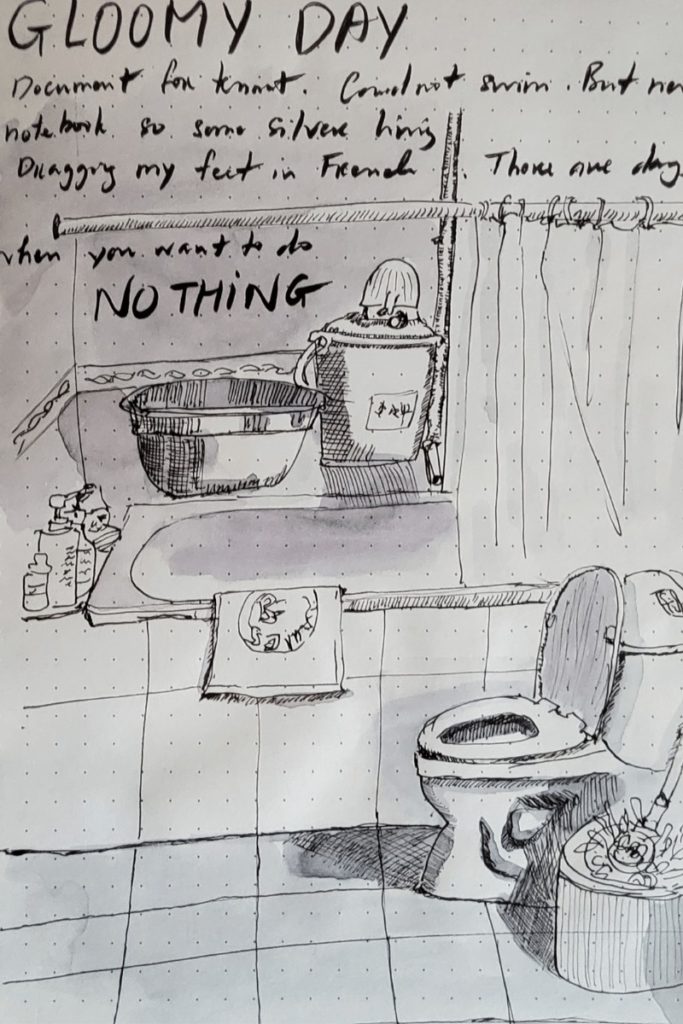 GLOOMY DAY
Document for tenant. Could not swim. But new
notebook so some silver lining
Dragging my feet in French. There are days
when you want to do
NOTHING